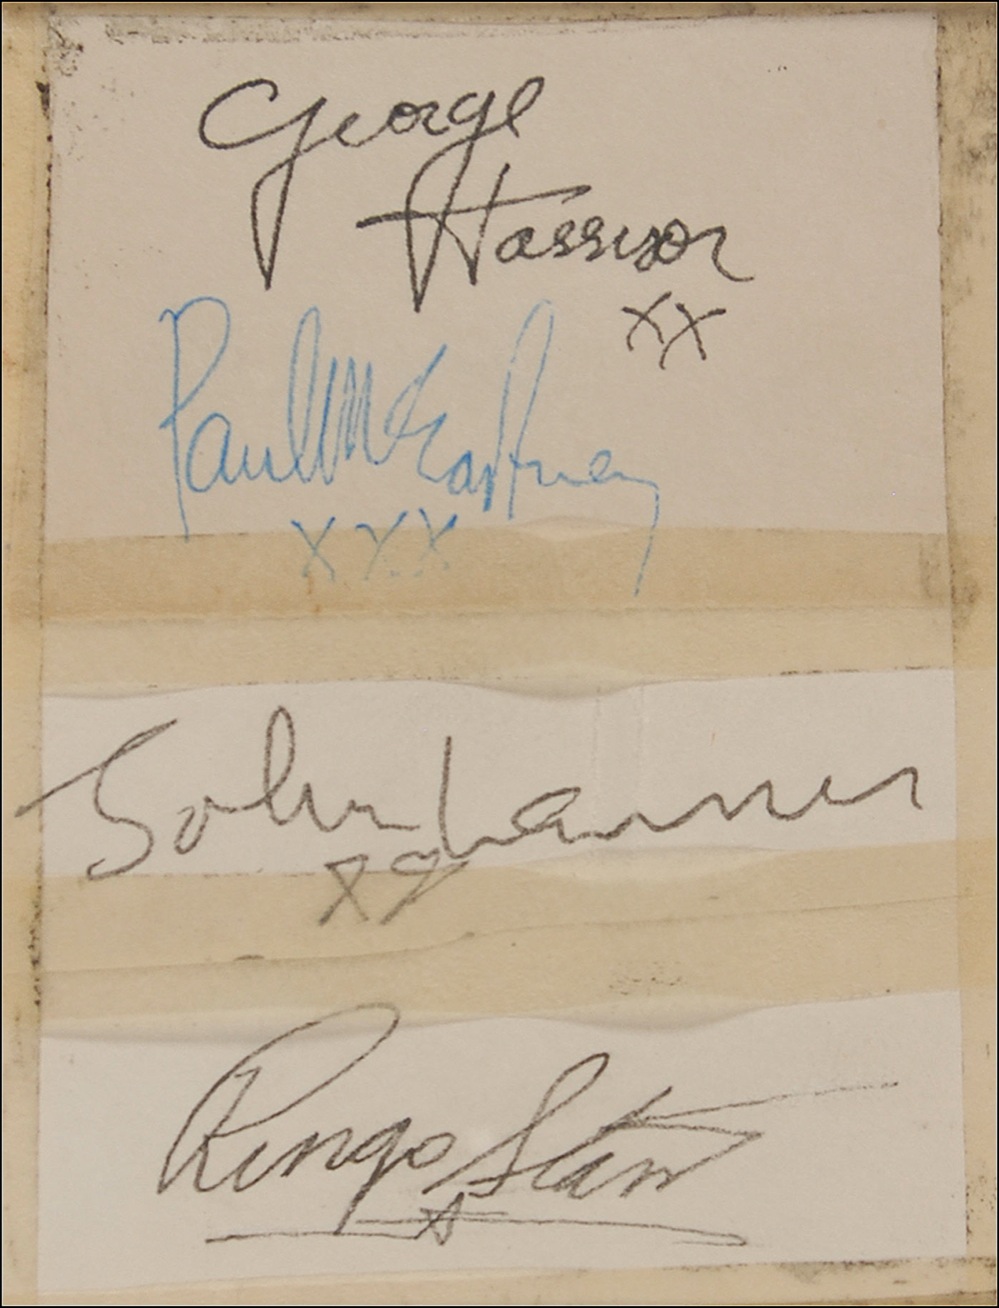 George
Harrison
xx
Paul McCartney
xxx
John Lennon
xx
Ringo Starr